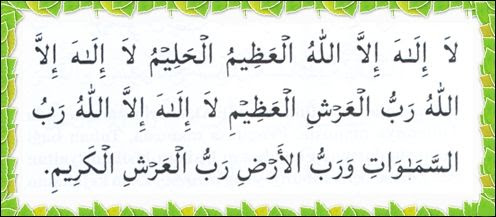 لاَ إِلَـٰهَ إِلاَّ اللهُ الْعَظِيمُ الْحَلِيْمُ لاَ إِلَـٰهَ إِلاَّ
اللهُ رَبُّ الْعَرْشِ الْعَظِيْمِ لاَ إِلَـٰهَ إِلاَّ اللهُ رَبُّ
السَّمَـٰوَاتِ وَرَبُّ الأَرْضِ رَبُّ الْعَرْشِ الْكَرِيمِ.